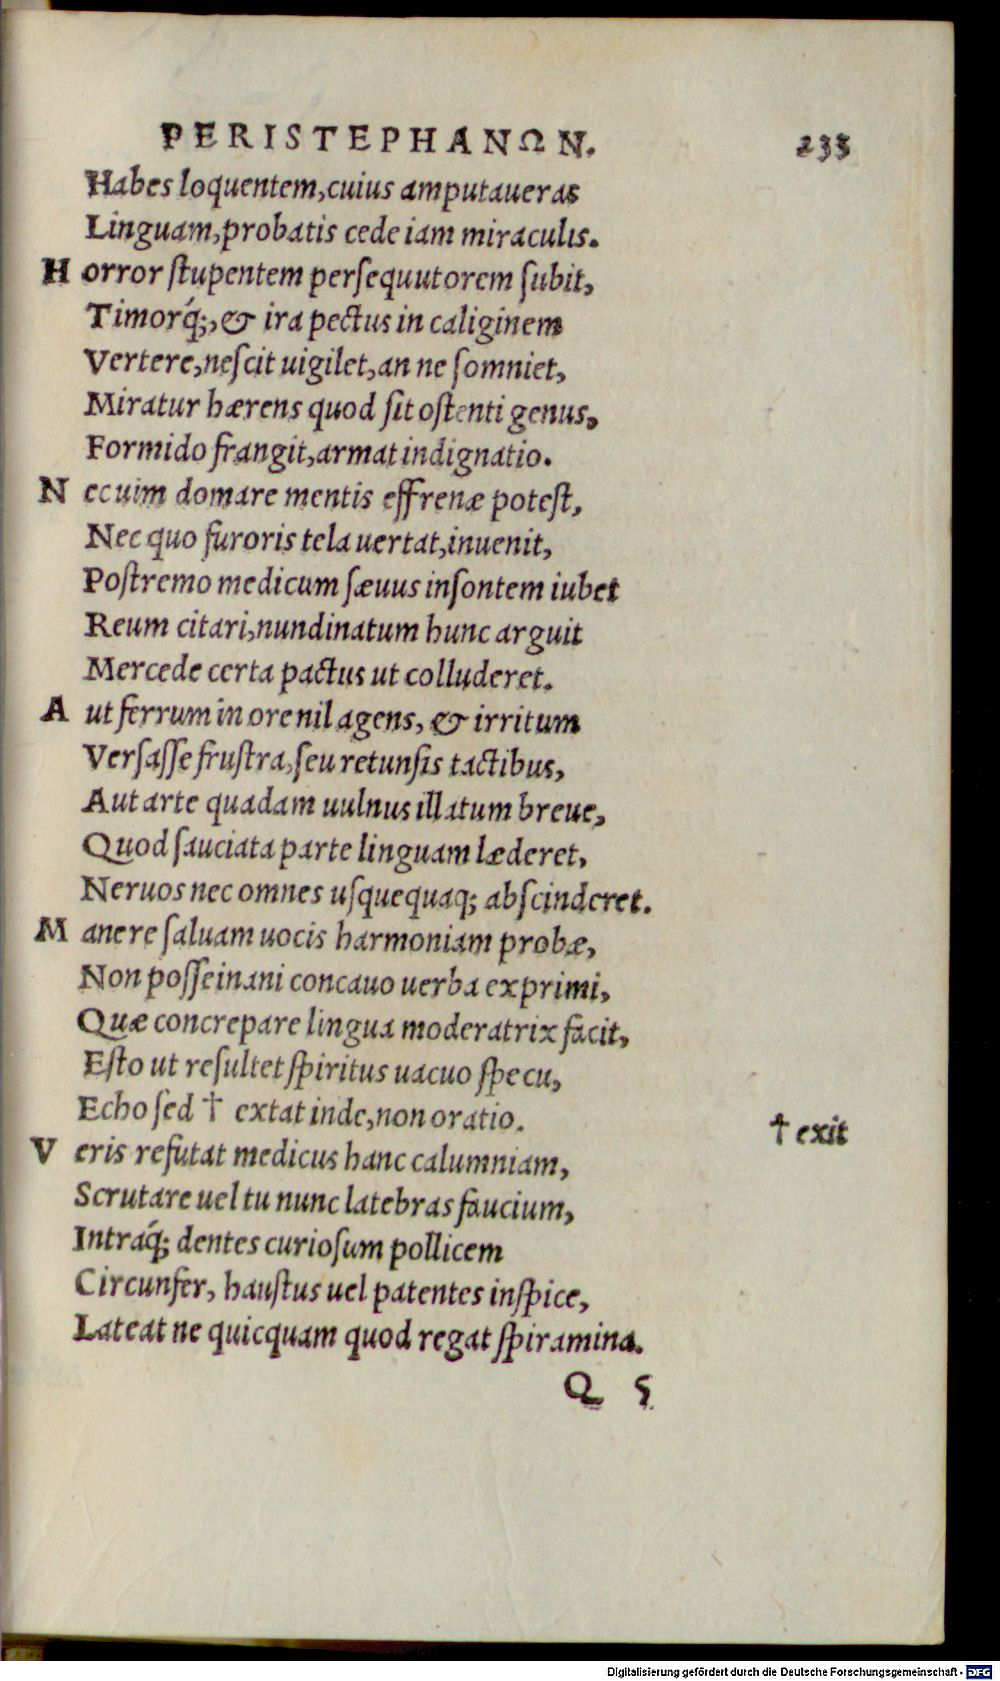 PERISTEPHANΩN. 233
Habes loquentem, cuius amputaueras
Linguam, probatis cede iam miraculis.
H orror stupentem persequutorem subit,
Timorq́;, & ira pectus in caliginem
Vertere, nescit uigilet, an ne somniet,
Miratur hærens quod sit ostenti genus,
Formido frangit, armat indignatio.
N ec uim domare mentis effrenæ potest,
Nec quo furoris tela uertat, inuenit,
Postremo medicum sæuus insontem iubet
Reum citari, nundinatum hunc arguit
Mercede certa pactus ut colluderet.
A ut ferrum in ore nil agens, & irritum
Versasse frustra, seu retunsis tactibus,
Aut arte quadam uulnus illatum breue,
Quod sauciata parte linguam læderet,
Neruos nec omnes usquequaq; abscinderet.
M anere saluam uocis harmoniam probæ,
Non posse inani concauo uerba exprimi,
Quæ concrepare lingua moderatrix facit,
Esto ut resultet spiritus uacuo specu,
Echo sed † extat inde, non oratio.
† exit
V eris refutat medicus hanc calumniam,
Scrutare uel tu nunc latebras faucium,
Intraq́; dentes curiosum pollicem
Circunfer, haustus uel patentes inspice,
Lateat ne quicquam quod regat spiramina.
Q 5
Digitalisierung gefördert durch die Deutsche Forschungsgemeinschaft - DFG